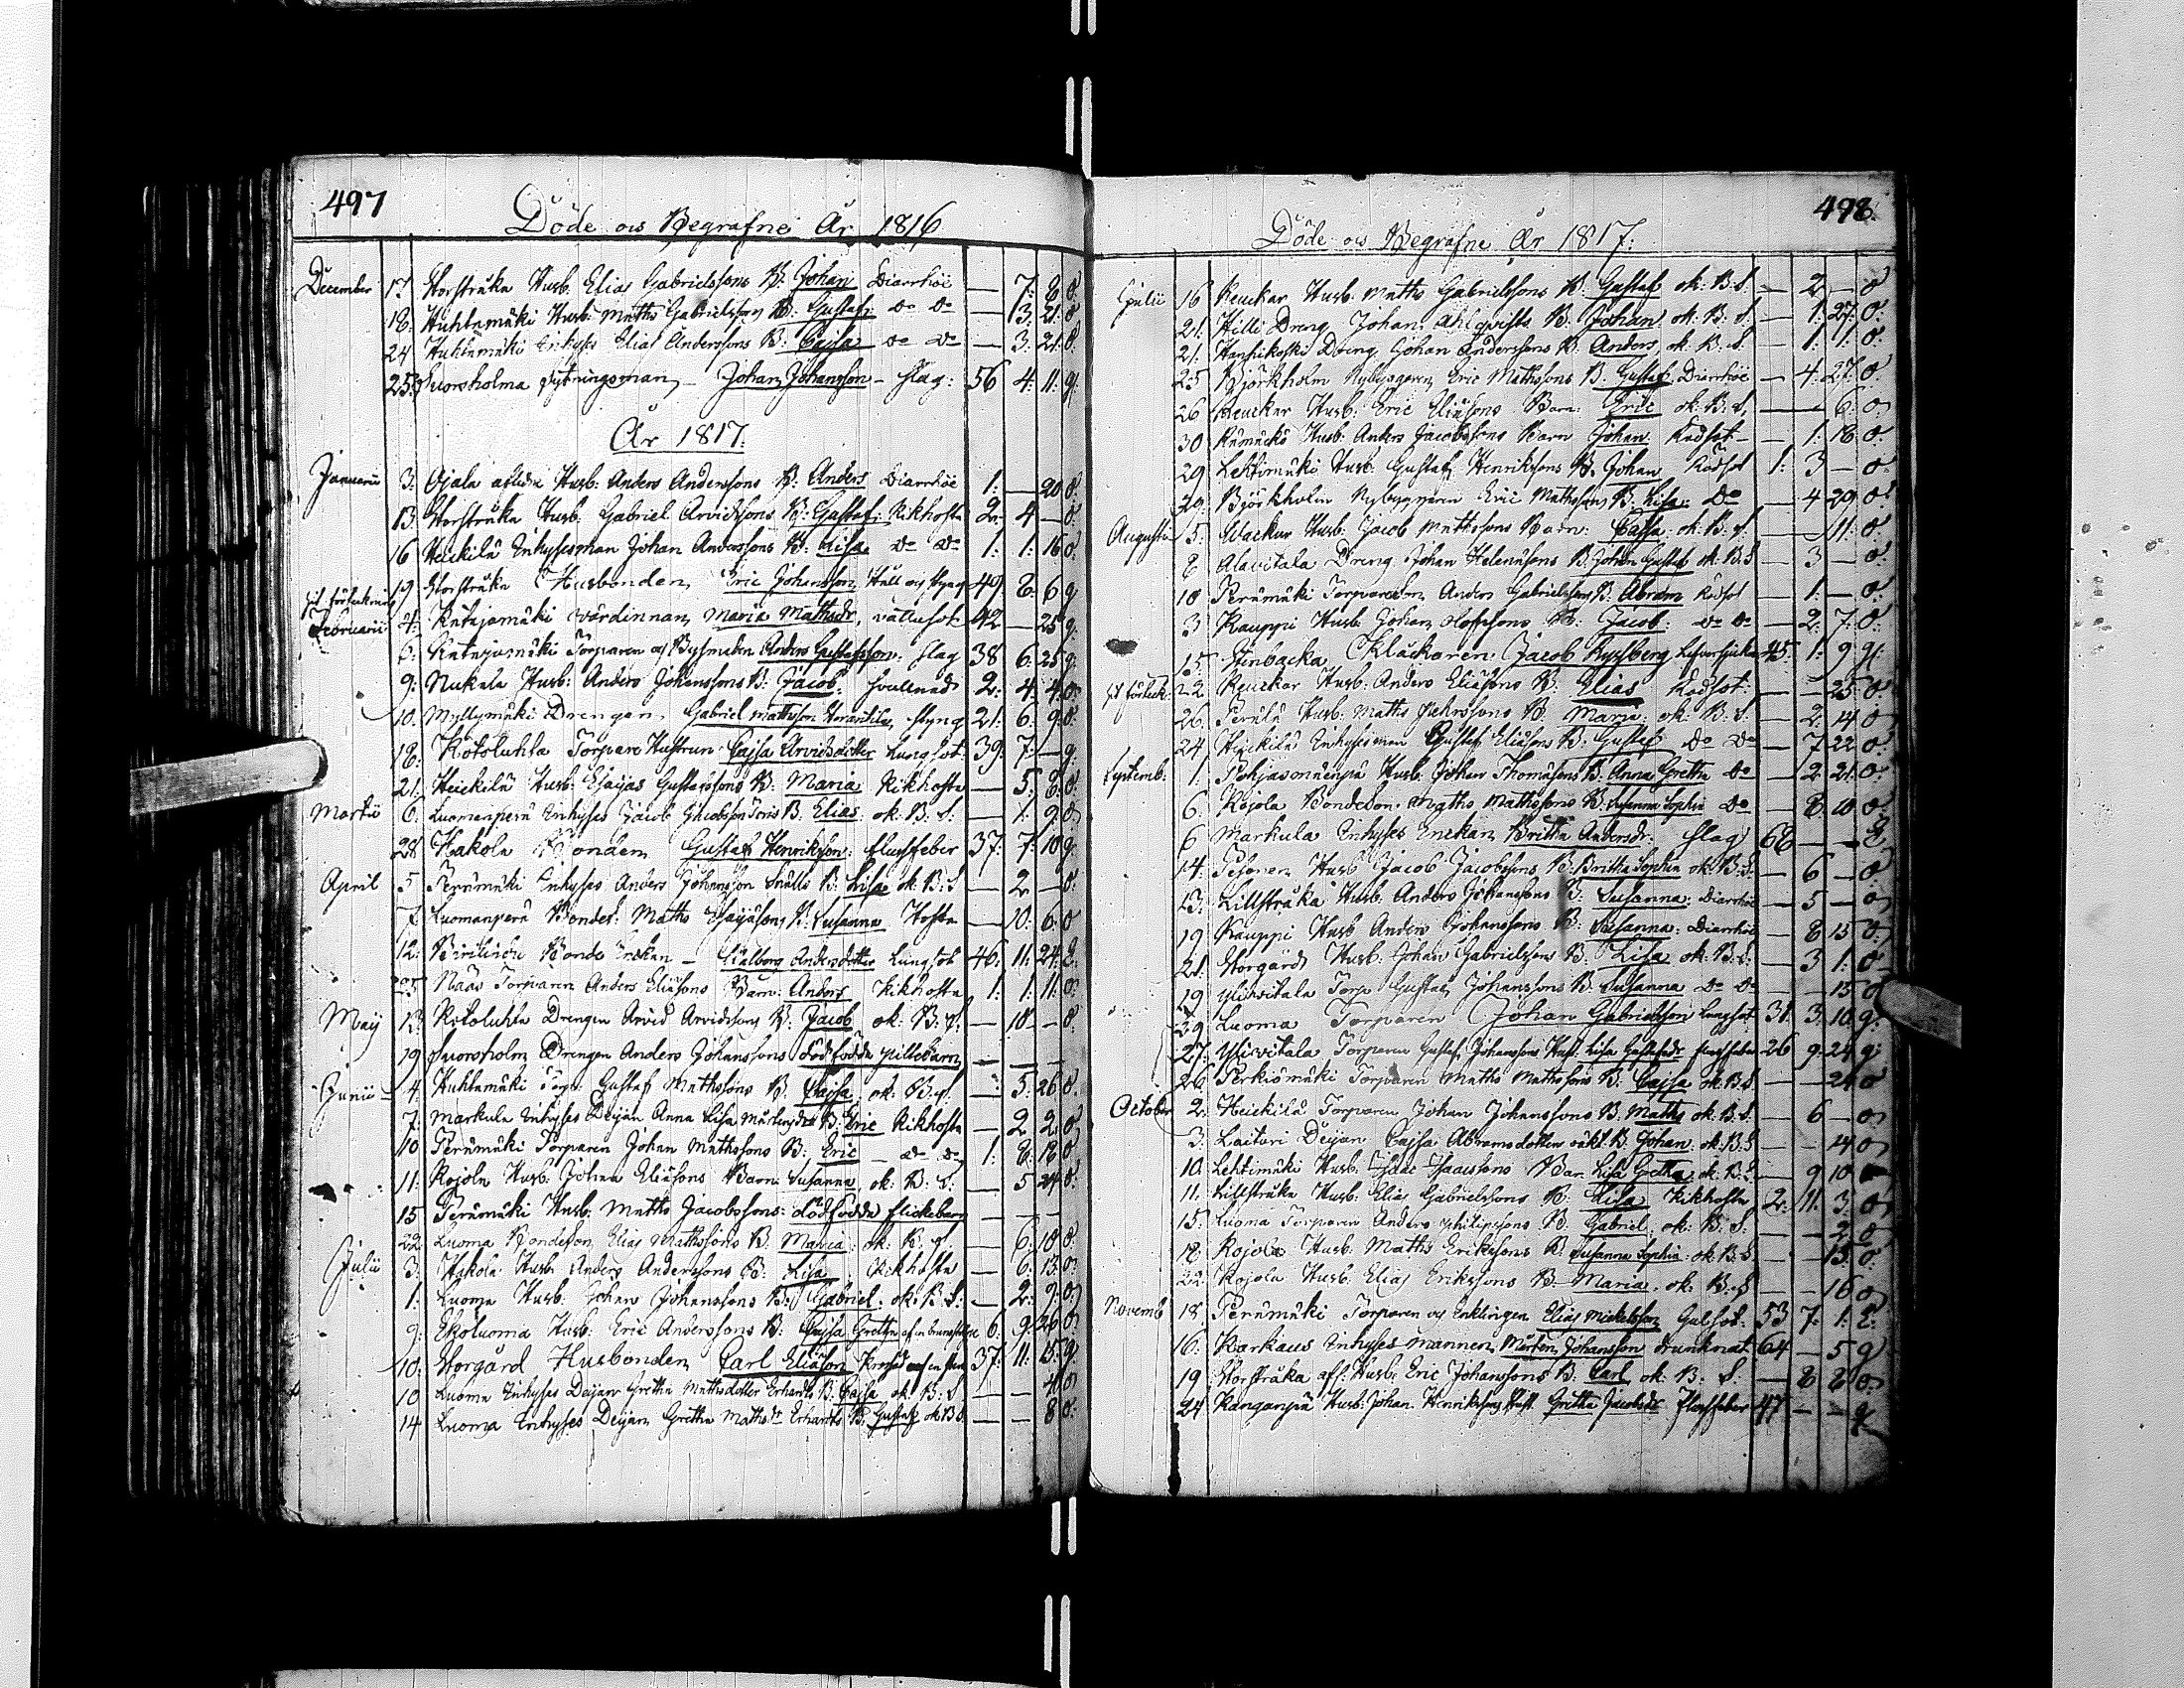 497
Döde och Begrafne År 1816
December 17 Storstråka Husb. Elias Gabrielssons B: Johan Diarrhöe — 7: 8 o:
18: Huhtamäki Husb: Matts Gabrielsson B: Gustaf: Do Do — 3: 21: o
24 Huhtamäki Inhyses Elias Anderssons B: Cajsa Do Do — 3: 21: o:
25: Suorsholma Johan Johansson – slag: 56 4: 11: g:
År 1817:
Januarii 3: Ojala aflidne Husb: Anders Anderssons B: Anders Diarrhöe 1: — 20 o:
13: Storstråka Husb: Gabriel Arvidssons B: Gustaf: Kikhosta 2: 4 — o:
16 Heickilä Inhysesman Johan Anderssons B: Lisa Do Do 1: 1: 16 o:
19: Storstråka Husbonden Eric Johansson Håll och styng 49 8: 6 g
Februarii 4: Katajamäki värdinnan Maria Mathsdr, vattusot 42 — 25 g:
6: Katajamäki Torparen och Bysmeden Anders Gustafsson: slag 38 6: 25 g:
9: Nukala Husb: Anders Johanssons B: Jacob: 2: 4: 4: o:
10. Myllymäki Drengen Gabriel Mattsson styng 21: 6: 9: o:
18: Kotoluhta Torpare Hustrun Cajsa Arvidsdotter Lungsot: 39: 7: — g:
21: Heickilä Husb: Esaijas Gustafssons B: Maria Kikhosta — 5: 8: o:
Martii 6: Luomanperä Inhyses Jacob B: Elias: ok: B. S: — 1: 9: o:
28 Hakola Bonden Gustaf Henriksson: flussfeber 37: 7: 10 g:
April 5 Perämäki Inhyses Anders Johansson B: Lisa ok: B: S — 2 — o:
7. Luomanperä Bondes: Matts Esaijäsons B: Susanna Hosta — 10: 6: o
12: Bonde Enkan – Walborg Andersdotter Lungsot 46: 11: 24: E:
25 Nääs Torparen Anders Eliäsons Barn: Anders Kikhosta 1: 1: 11: o:
Maij 13 Kotoluhta Drengen Arvid Arvidssons B: Jacob ok: B: S: — 10 — o
19 Suorsholm Drengen Anders Johanssons dödfödda gillebarn — — —
Junii 4. Huhtamäki Torp: Gustaf Mathssons B: Cajsa: ok: B. S. — 5: 26 o:
7: Markula Inhyses Deijan Anna Lisa Mårtensdr B: Eric Kikhosta — 2 2: o:
10 Perämäki Torparen Johan Mathssons B: Eric – Do Do 1: 8: 18 o:
11: Rojola Husb: Johan Eliäsons Barn: Susanna ok: B: S: — 5 24 o:
15 Perämäki Husb: Matts Jacobssons: dödfödda flickebarn — — —
22. Luoma Bondeson Elias Mathssons B. Maria: ok: B. S. — 6: 10 o:
Julii 3: Hakola Husb: Anders Anderssons B: Lisa Kikhosta — 6: 13: o:
1: Luoma Husb: Johan Johanssons B: Gabriel: ok: B S: — 2: 9: o:
9: Ekoluoma Husb: Eric Anderssons B: Cajsa Gretha 6: 9: 26 o:
10: Storgård Husbonden Carl Eliäson 37: 11: 15: g
10 Luoma Inhyses Deijan Gretha Mathsdotter Erhards B: Cajsa ok: B: S — — 4 o:
14 Luoma Inhyses Deijan Gretha Mathsdr Erhards B: Gustaf ok B S — — 8 o:
498.
Döde och Begrafne År 1817:
Julii 16 Reuckar Husb: Matts Gabrielssons B: Gustaf ok: B: S: — 2 — o
21. Hilli Dreng Johan Ahlqvists B: Johan ok: B. S. — 1: 27: o:
21. Hanhikoski Dreng Johan Anderssons B: Anders, ok. B. S — 1: 1: o:
25 Björkholm Nybyggaren Eric Mathssons B: Gustaf Diarrhöe — 4: 27: o:
26 Reuckar Husb: Eric Eliäsons Barn: Eric ok: B: S, — — 6: o:
30 Husb: Anders Jacobssons Barn Johan Rödsot — — 1: 18 o:
29 Lehtimäki Husb: Gustaf Henrikssons B. Johan Rödsot 1: 3 — o:
29: Björkholm Nybyggaren Eric Mathssons B: Lisa: Do — 4 29 o:
Augusti 5: Wackur Husb: Jacob Mathssons Barn: Cajsa: ok: B. S: — — 11: o:
8 Alavitala Dreng Johan B: Johan Gustaf ok: B: S — 3 — o:
10 Perämäki Torparen Anders Gabrielsson B: Abram Rödsot — 1: — o:
3 Kauppi Husb: Johan Olofssons B: Jacob: Do Do — 2: 7: o:
15: Stenbacka Klåckaren Jacob 45: 1: 9 g:
22 Reuckar Husb: Anders Eliäsons B: Elias Rödsot: — — 25 o:
26 Perälä Husb: Matts B: Maria: ok: B. S: — 2: 14 o
24 Heickilä Inhysesman Gustaf Eliäsons B: Gustaf Do Do — 7 22 o:
Septemb: 1. Pohjasonnenpä Husb: Johan Thomäsons B: Anna Gretha Do — 2: 21: o:
6: Rojola Bondeson Matts Mathssons B: Susanna Sophia Do — 8: 10 o:
6 Markula Inhyses Enckan Britha Andersdr: slag 68 — — E
14: Pesonen Husb: Jacob Jacobssons B: Britha Sophia ok: B. S. — 6 — o
13: Lillstråka Husb: Anders Johanssons B: Susanna: Diarrhöe — 5 — o
19 Kauppi Husb Anders Johanssons B: Susanna: Diarrhöe — 8 15 o:
21. Storgård Husb: Johan Gabrielssons B: Lisa ok: B: S. — 3 1: o:
19 Yliwitala Torp: Gustaf Johanssons B: Susanna Do Do — — 15: o
29 Luoma Torparen Johan Gabrielsson Lungsot 31: 3: 10 g:
27. Yliwitala Torparen Gustaf Johanssons Hust: Lisa Gustafsdr 26 9: 24 g:
26. Perkiömäki Torparen Matts Mathssons B: Cajsa ok: B. S. — — 24 o
October 2. Heickilä Torparen Johan Johanssons B. Matts ok: B. S. — 6 — o:
3. Laituri Deijan Cajsa Abramsdotters oäkt. B: Johan: ok: B. S — — 14 o:
10: Lehtimäki Husb: Isaac Isaacssons Bar: Lisa Gretha: ok: B: S: — 9 10
11. Lillstråka Husb: Elias Gabrielssons B: Lisa Kikhosta 2: 11: 3: o:
15. Luoma Torparen Anders Philipssons B: Gabriel: ok: B. S: — — 2 o
18: Rojola Husb. Matts Erikssons B. Susanna Sophia: ok: B: S — — 15: o:
22. Rojola Husb: Elias Erikssons B: Maria: ok: B: S — — 16 o:
Novemb 18. Perämäki Torparen och Enklingen Elias Mickelsson Gulsot: 53 7: 1: E:
16: Karhaus Inhyses mannen Mårten Johansson drunknat: 64 — 5 g
19 Storstråka afl: Husb: Eric Johanssons B: Carl ok: B: S: — 8 8 o:
24 Kanganpä Husb: Johan Henrikssons Hust. Gretha Jacobsdr Flussfeber 47 — — g